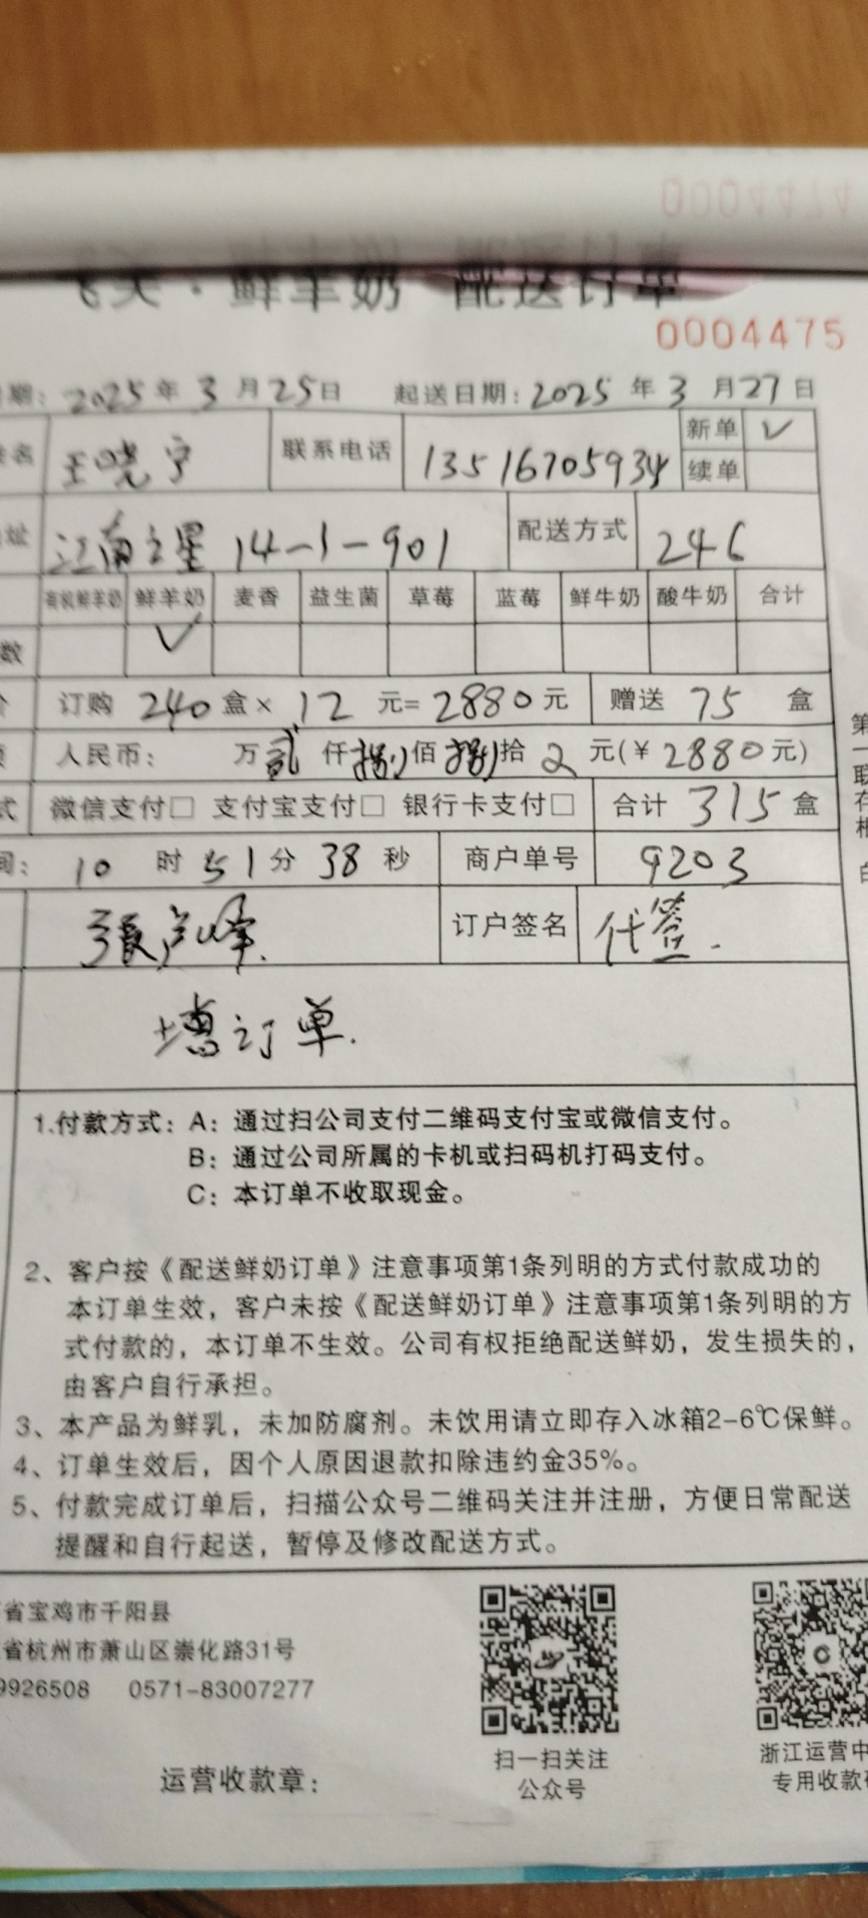 0004474
飞关·鲜羊奶 配送订单
0004475
期: 2025年3月25日 起送日期: 2025年3月27日
姓名 王晓宁 联系电话 13516705934 新单 ✓
续单
址 江南之星 14-1-901 配送方式 246
有机鲜羊奶 鲜羊奶 麦香 益生菌 草莓 蓝莓 鲜牛奶 酸牛奶 合计
数 ✓
价 订购 240 盒× 12 元= 2880 元 赠送 75 盒
人民币: 万 贰 仟 捌 佰 捌 拾 元(¥ 2880元)
式 微信支付□ 支付宝支付□ 银行卡支付□ 合计 315 盒
间: 10 时 51 分 38 秒 商户单号 9203
订户签名 代签.
增订单.
1.付款方式: A: 通过扫公司支付二维码支付宝或微信支付。
B: 通过公司所属的卡机或扫码机打码支付。
C: 本订单不收取现金。
2、客户按《配送鲜奶订单》注意事项第1条列明的方式付款成功的
本订单生效，客户未按《配送鲜奶订单》注意事项第1条列明的方
式付款的，本订单不生效。公司有权拒绝配送鲜奶，发生损失的，
由客户自行承担。
3、本产品为鲜乳，未加防腐剂。未饮用请立即存入冰箱2-6℃保鲜。
4、订单生效后，因个人原因退款扣除违约金35%。
5、付款完成订单后，扫描公众号二维码关注并注册，方便日常配送
提醒和自行起送，暂停及修改配送方式。
省宝鸡市千阳县
省杭州市萧山区崇化路31号
9926508 0571-83007277
运营收款章:
扫一扫关注
公众号
浙江运营中
专用收款
第一联存根